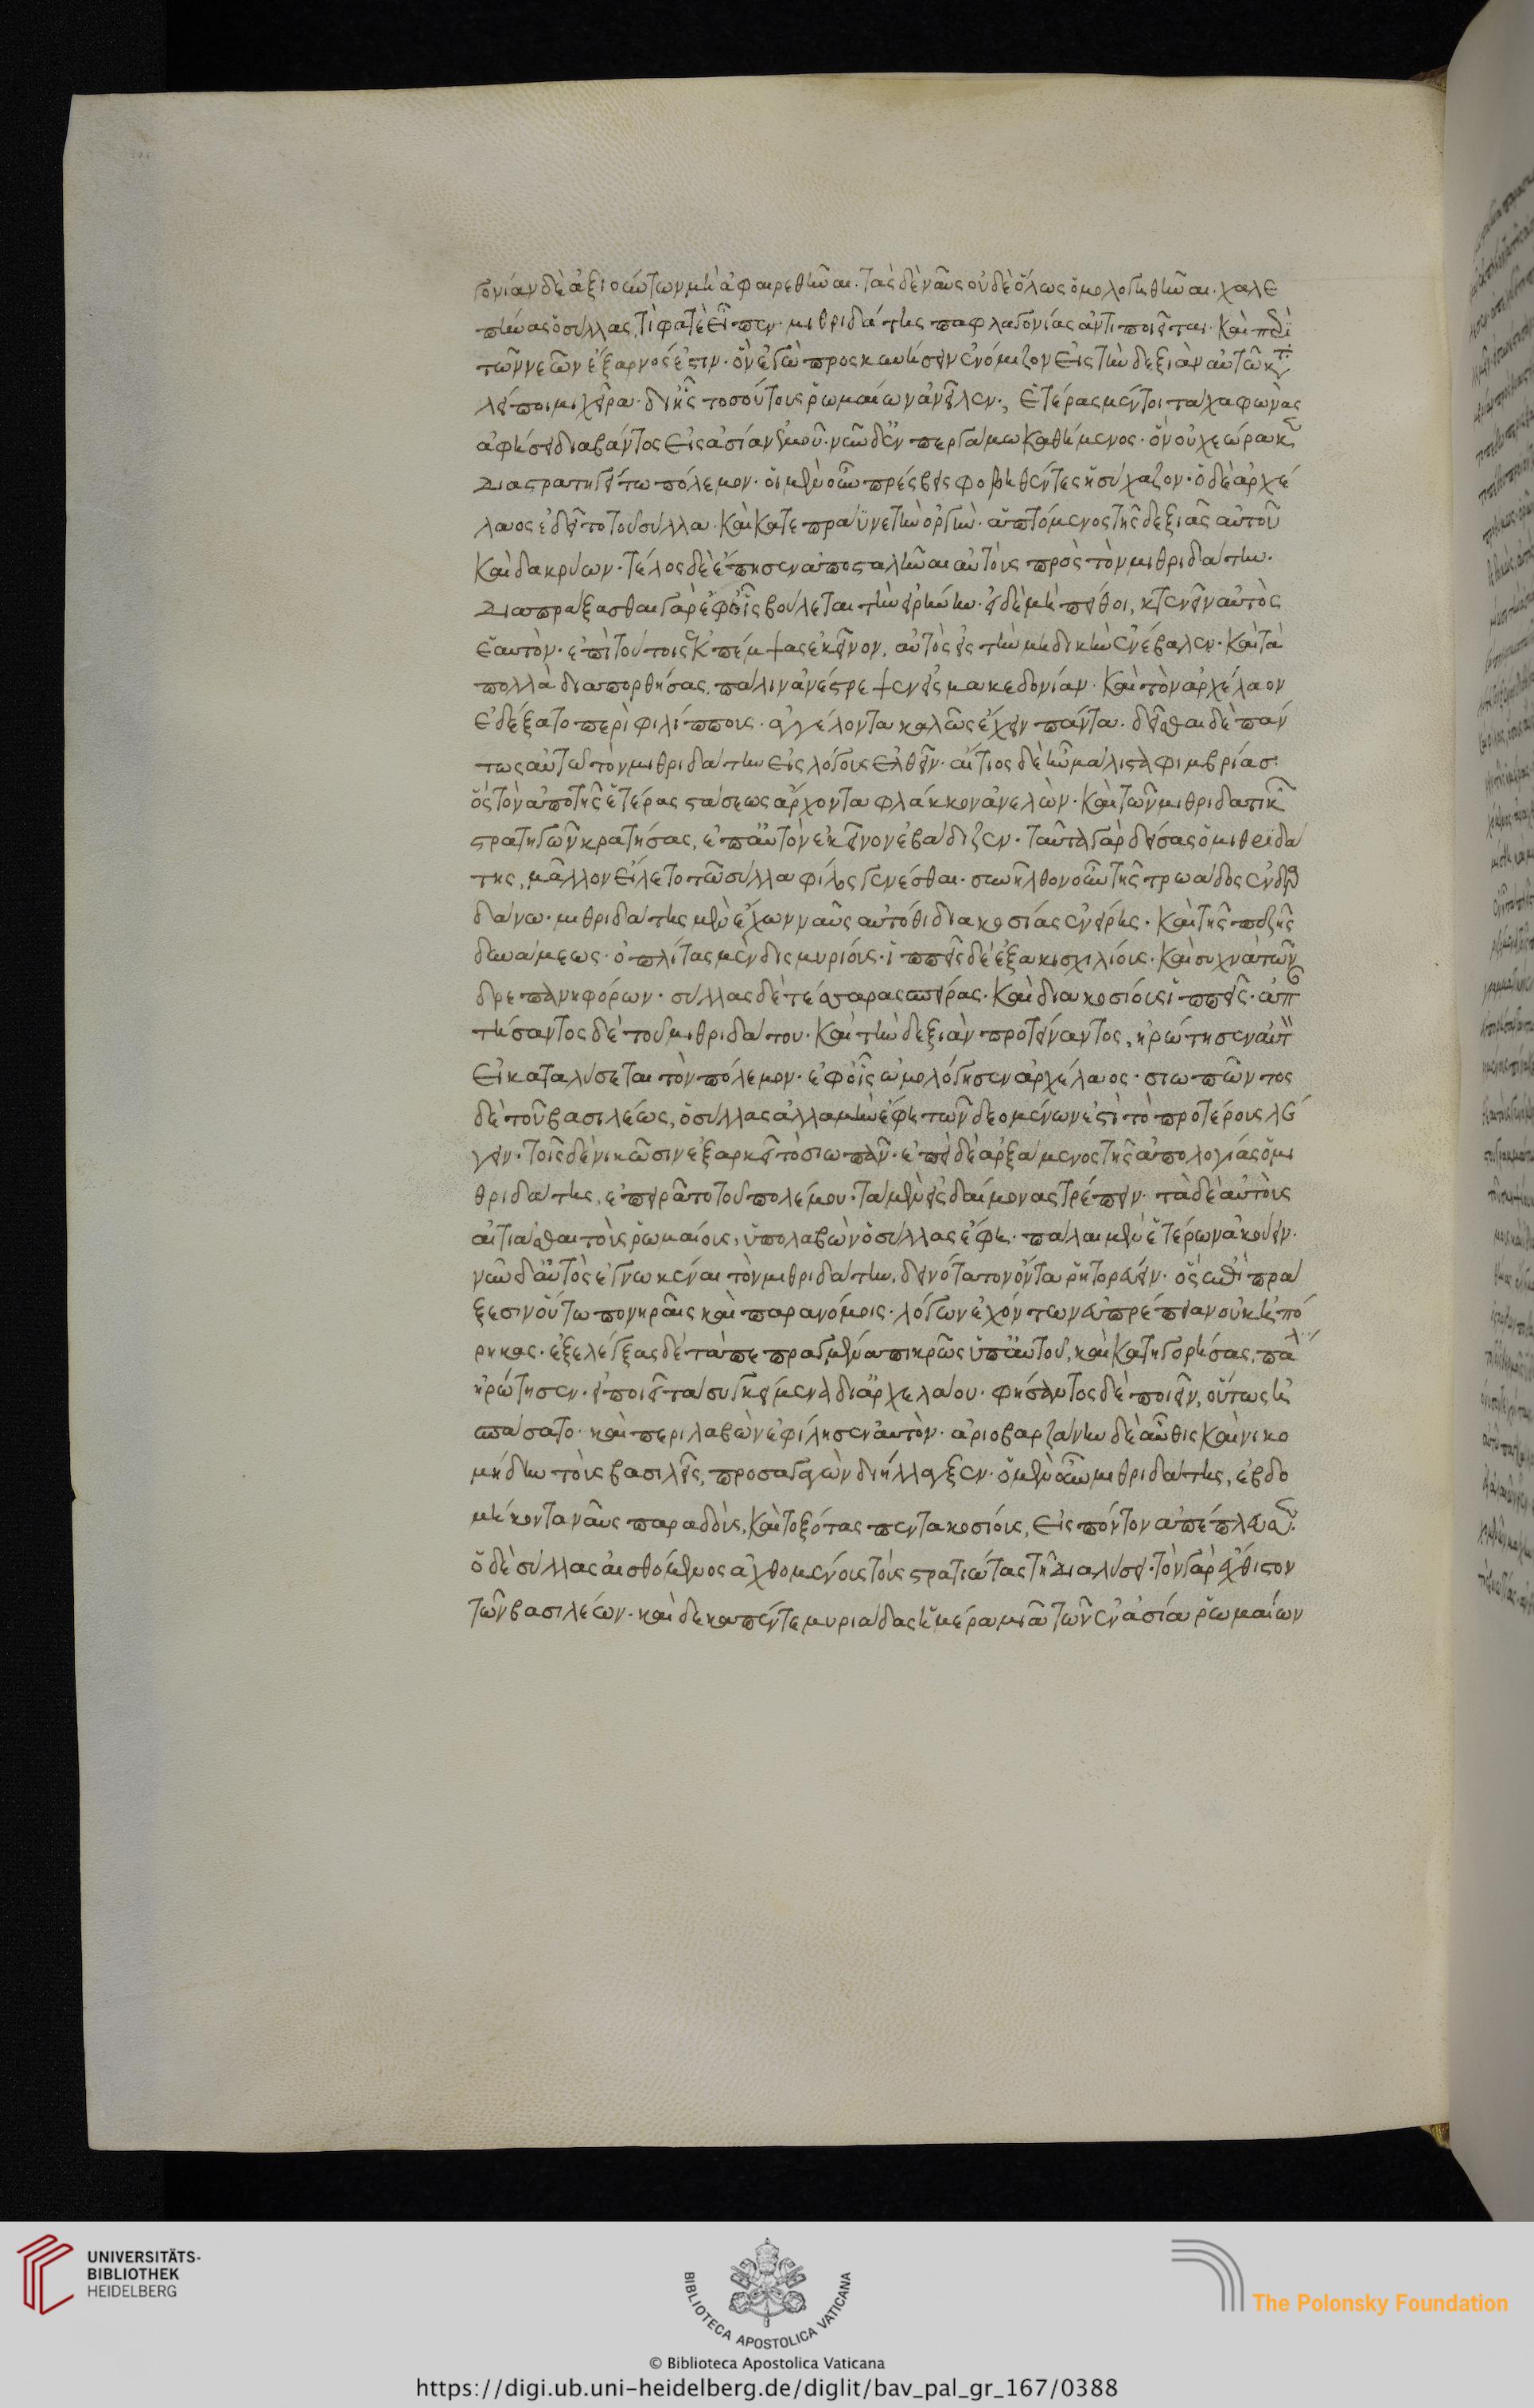 γονίαν δὲ ἀξιούντων μὴ ἀφαιρεθῆναι· τὰς δὲ ναῦς οὐδὲ ὅλως ὁμολογηθῆναι· χαλε
πήνας ὁ σύλλας, τί φατὲ εἶπεν· μιθριδάτης παφλαγονίας ἀντιποιεῖται· καὶ περὶ
τῶν νεῶν ἔξαρνός ἐστιν· ὃν ἐγὼ προσκυνήσειν ἐνόμιζον εἰς τὴν δεξιὰν αὐτῶ κατα
λείποιμι χεῖρα· δι' ἧς τοσούτους ῥωμαίων ἀνεῖλεν· ἑτέρας μέντοι τάχα φωνὰς
ἀφήσει διαβάντος εἰς ἀσίαν ἐμοῦ· νῦν δ' ἐν περγάμω καθήμενος· ὃν οὐχ ἑώρακε
διαστρατηγεῖ τω πόλεμον· οἱ μὲν οὖν πρέσβεις φοβηθέντες ἡσύχαζον· ὁ δὲ ἀρχέ
λαος ἐδεῖτο τοῦ σύλλα· καὶ κατεπράϋνε τὴν ὀργὴν· ἁπτόμενος τῆς δεξιᾶς αὐτοῦ
καὶ δακρύων· τέλος δὲ ἔπησεν ἀποσταλῆναι αὐτὸς πρὸς τὸν μιθριδάτην·
διαπράξασθαι γὰρ ἐφ' οἷς βούλεται τὴν εἰρήνην· εἰ δὲ μὴ πείθοι, κτενεῖν αὐτὸς
ἑαυτὸν· ἐπὶ τούτοις ἐκπέμψας ἐκεῖνον, αὐτὸς εἰς τὴν μηδικὴν ἐνέβαλεν· καὶ τὰ
πολλὰ διαπορθήσας, πάλιν ἀνέστρεψεν εἰς μακεδονίαν· καὶ τὸν ἀρχέλαον
ἐδέξατο περὶ φιλίππους· ἀγγέλοντα καλῶς ἔχειν πάντα· δεῖσθαι δὲ πάν
τως αὐτῶ τὸν μιθριδάτην εἰς λόγους ἐλθεῖν· αἴτιος δὲ ἦν μάλιστα φιμβρίας·
ὃς τὸν ἀπὸ τῆς ἑτέρας στάσεως ἄρχοντα φλάκκον ἀνελὼν· καὶ τῶν μιθριδατικῶν
στρατηγῶν κρατήσας, ἐπ' αὐτὸν ἐκεῖνον ἐβάδιζεν· ταῦτα γὰρ δείσας ὁ μιθριδά
της, μᾶλλον εἵλετο τῶ σύλλα φίλος γενέσθαι· συνῆλθον οὖν τῆς τρωάδος ἐν δαρ
δάνω· μιθριδάτης μὲν ἔχων ναῦς αὐτόθι διακοσίας ἐνήρεις· καὶ τῆς πεζῆς
δυνάμεως· ὁπλίτας μὲν δισμυρίους· ἱππεῖς δὲ ἑξακισχιλίους· καὶ συχνὰ τῶν
δρεπανηφόρων· σύλλας δὲ τέσσαρας σπείρας· καὶ διακοσίους ἱππεῖς· ἀπαν
τήσαντος δὲ τοῦ μιθριδάτου· καὶ τὴν δεξιὰν προτείναντος, ἠρώτησεν αὐτὸν
εἰ καταλύσεται τὸν πόλεμον· ἐφ' οἷς ὡμολόγησεν ἀρχέλαος· σιωπῶντος
δὲ τοῦ βασιλέως, ὁ σύλλας ἀλλὰ μὴν ἔφη τῶν δεομένων ἐστὶ τὸ προτέρους λέ
γειν· τοῖς δὲ νικῶσιν ἐξαρκεῖ τὸ σιωπᾶν· ἐπεὶ δὲ ἀρξάμενος τῆς ἀπολογίας ὁ μι
θριδάτης, ἐπειρᾶτο τοῦ πολέμου· τὰ μὲν εἰς δαίμονας τρέπειν· τὰ δὲ αὐτοὺς
αἰτιᾶσθαι τοὺς ῥωμαίους, ὑπολαβὼν ὁ σύλλας ἔφη· πάλαι μὲν ἑτέρων ἀκούειν·
νῦν δ' αὐτὸς ἐγνωκέναι τὸν μιθριδάτην, δεινότατον ὄντα ῥητορεύειν· ὃς ἐπὶ πρά
ξεσιν οὕτω πονηραῖς καὶ παρανόμοις· λόγων ἐχόντων εὐπρέπειαν οὐκ ἠπό
ρηκας· ἐξελέγξας δὲ τὰ πεπραγμένα πικρῶς ὑπ' αὐτοῦ, καὶ κατηγορήσας, πάλιν
ἠρώτησεν· εἰ ποιεῖ τὰ συγκείμενα δι' ἀρχελάου· φήσαντος δὲ ποιεῖν, οὕτως ἠ
σπάσατο· καὶ περιλαβὼν ἐφίλησεν αὐτὸν· ἀριοβαρζάνην δὲ αὖθις καὶ νικο
μήδην τοὺς βασιλεῖς, προσαγαγὼν διήλλαξεν· ὁ μὲν οὖν μιθριδάτης, ἑβδο
μήκοντα ναῦς παραδοὺς, καὶ τοξότας πεντακοσίους, εἰς πόντον ἀπέπλευσεν·
ὁ δὲ σύλλας αἰσθόμενος ἀχθομένους τοὺς στρατιώτας τῆ διαλύσει· τὸν γὰρ ἔχθιστον
τῶν βασιλέων· καὶ δεκαπέντε μυριάδας ἡμέρα μιᾶ τῶν ἐν ἀσία ῥωμαίων
UNIVERSITÄTS-
BIBLIOTHEK
HEIDELBERG
BIBLIOTECA APOSTOLICA VATICANA
The Polonsky Foundation
© Biblioteca Apostolica Vaticana
https://digi.ub.uni-heidelberg.de/diglit/bav_pal_gr_167/0388